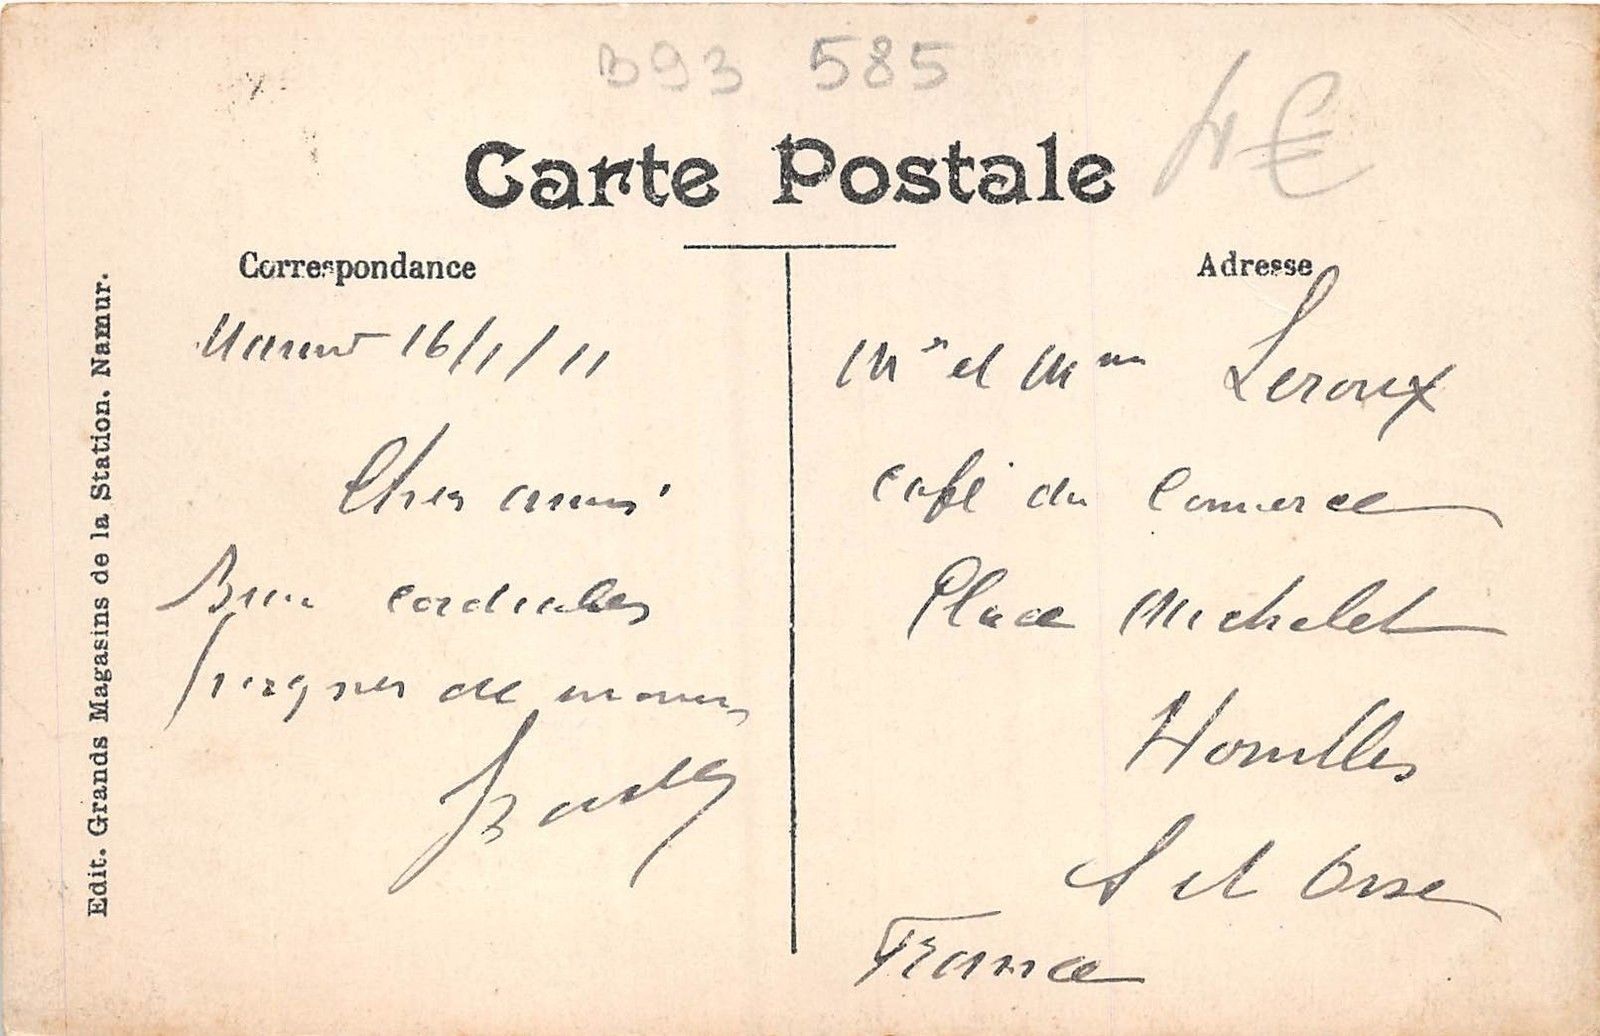 B93 585
4€
Carte Postale
Correspondance
Adresse
Edit. Grands Magasins de la Station. Namur.
Namur 16/1/11
Cher amis
Bien cordiales
poignes de mains
Mr et Mme Leroux
Café du Comerce
Place Michelet
Houilles
S et Oise
France